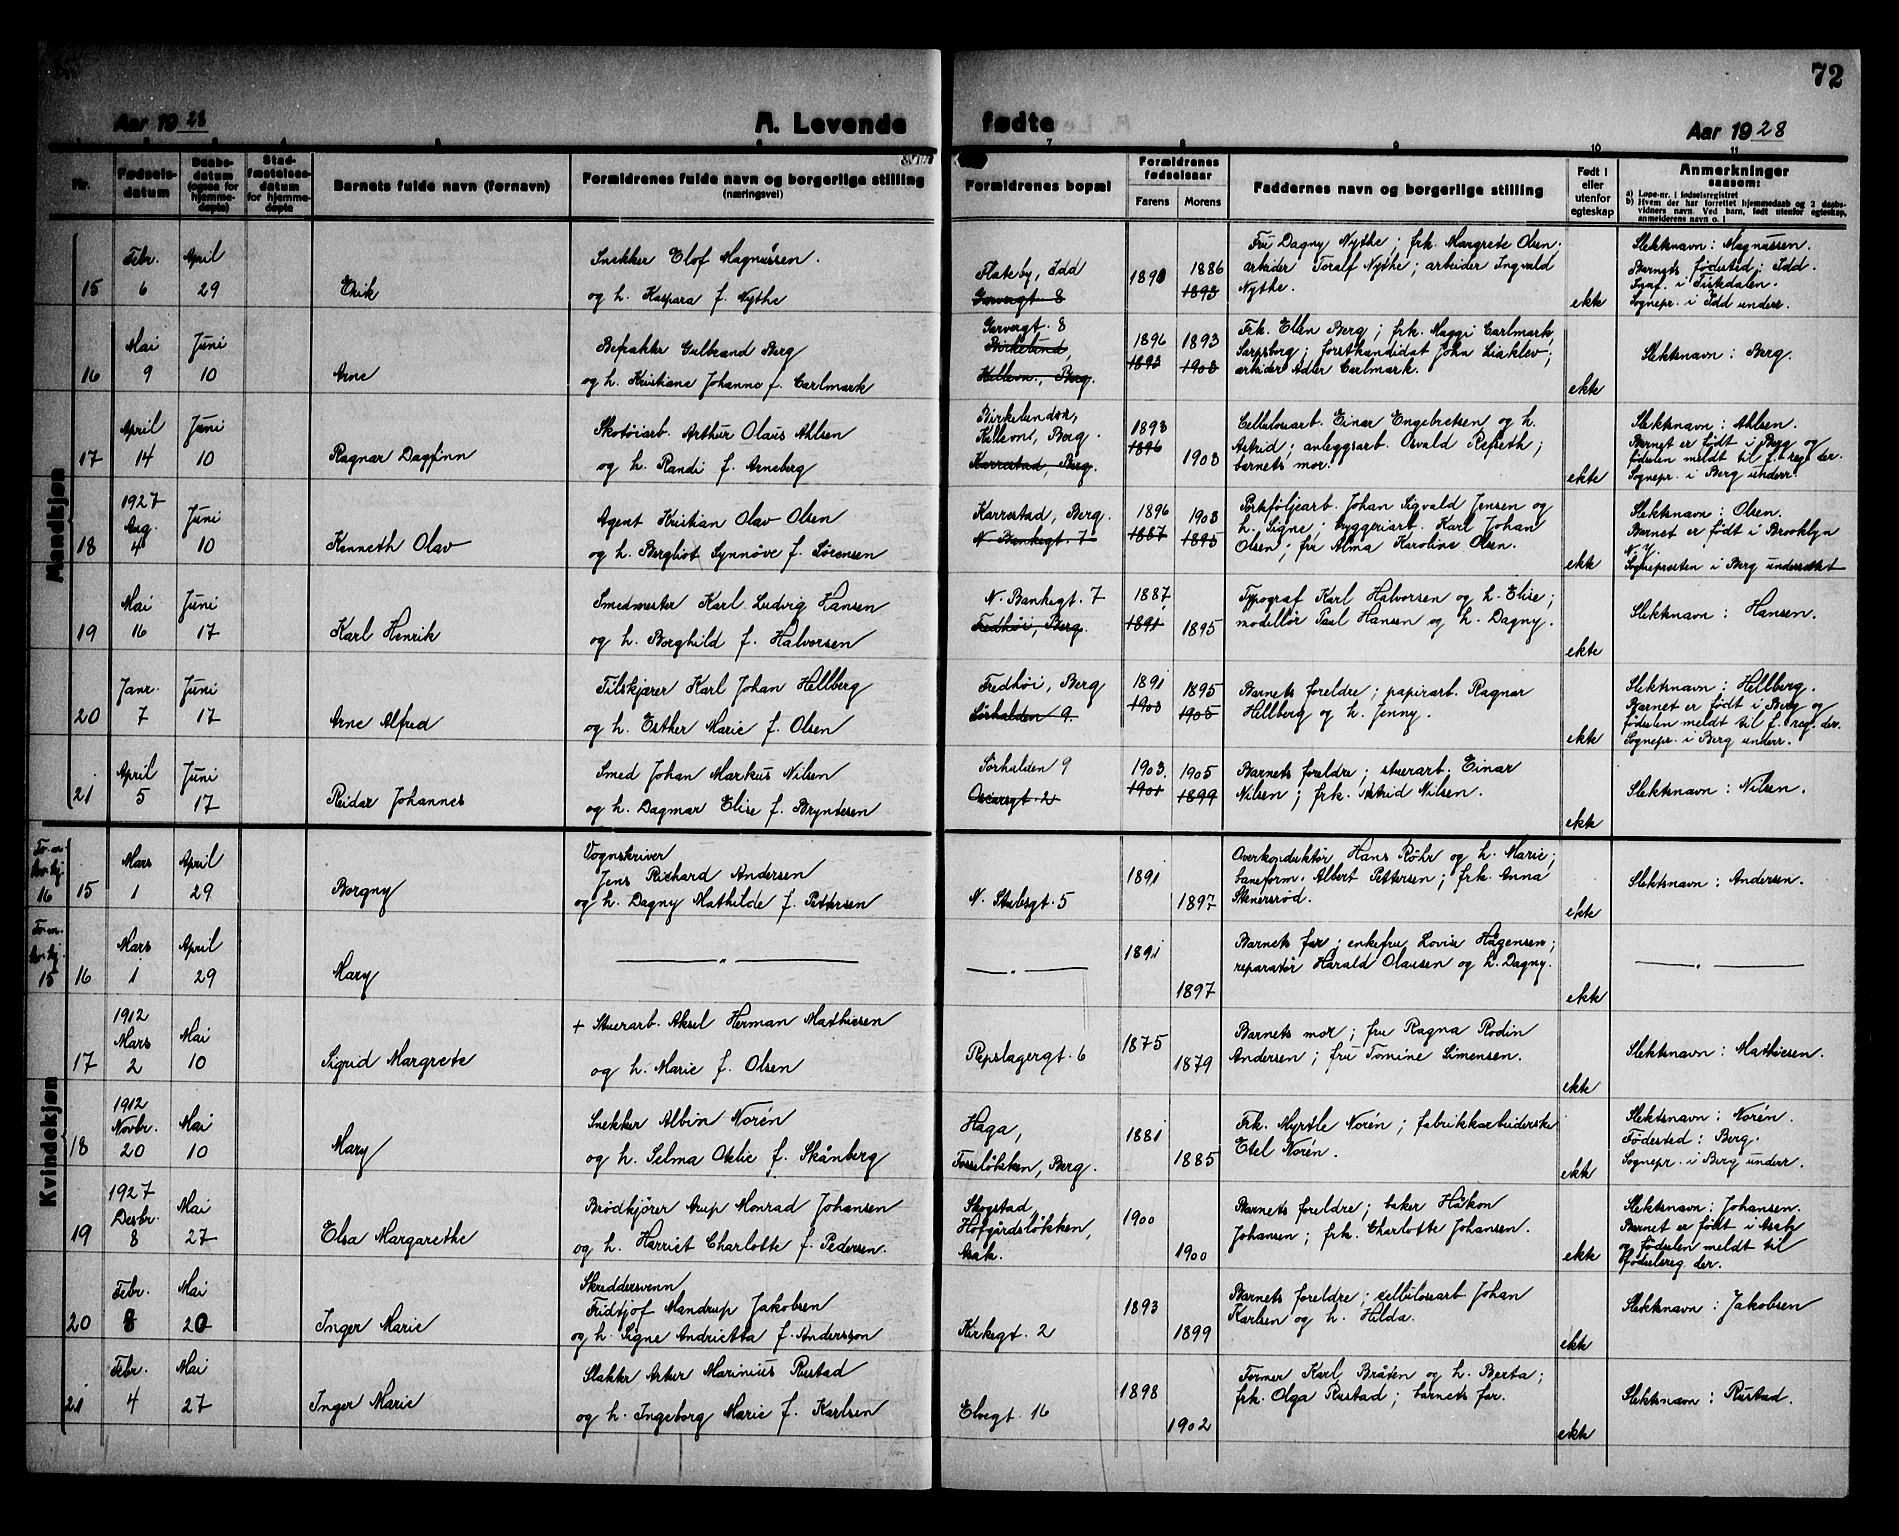 72
Aar 1928
A. Levende
fødte
Aar 1928
Nr.
Fødsels-
datum
Daabs-
datum
(ogsaa for
hjemme-
døpte)
Stad-
fæstelses-
datum
for hjemme-
døpte
Barnets fulde navn (fornavn)
Forældrenes fulde navn og borgerlige stilling
(næringsvei)
Forældrenes bopæl
Forældrenes
fødselsaar
Farens
Morens
Faddernes navn og borgerlige stilling
Født i
eller
utenfor
egteskap
Anmerkninger
saasom:
a) Løpe-nr. i fødselsregistret
b) Hvem der har forrettet hjemmedaab og 2 daabs-
vidners navn. Ved barn, født utenfor egteskap,
anmelderens navn o. l
Mandkjøn
15
Febr.
6
April
29
Erik
Snekker Elof Magnussen.
og h. Kaspara f. Nythe
Flateby, Idd
Garvergt 8
1890
1886
1893
Fru Dagny Nythe; frk. Margrete Olsen.
arbeider Toralf Nythe; arbeider Ingvald
Nythe.
ekte
Slektsnavn: Magnussen.
Barnets fødested: Idd.
Sognepr. i Idd underr.
16
Mai
9
Juni
10
Arne
Befrakter Gulbrand Berg
og h. Kristiane Johanne f. Carlmark
Garvergt. 8
Birkelund,
Berg.
1896
1893
1893
1903
Frk. Ellen Berg; frk. Maggi Carlmark,
Sarpsborg; forstkandidat John Liaklev;
arbeider Adler Carlmark.
ekte
Slektsnavn: Berg.
17
April
14
Juni
10
Ragnar Dagfinn
Skotøiarb. Arthur Olaus Ahlsen
og h. Randi f. Arneberg
Berg.
Karrestad, Berg.
1893
1896
1903
Cellulosearb. Einar Engebretsen og h.
Astrid; anleggsarb. Osvald Refseth;
barnets mor.
ekte
Slektsnavn: Ahlsen.
Barnet er født i Berg og
fødselen meldt til f. reg. der.
Sognepr. i Berg underr.
18
1927
Aug.
4
Juni
10
Kenneth Olav
Agent Kristian Olav Olsen
og h. Bergliot Synnøve f. Sørensen
Karrestad, Berg.
N. Bankegt. 7
1896
1887
1903
1895
Johan Sigvald Jensen og
h. Signe; byggeriarb. Karl Johan
Olsen; fru Alma Karoline Olsen.
ekte
Slektsnavn: Olsen.
Barnet er født i Brooklyn
N. Y.
Sognepresten i Berg underrettet
19
Mai
16
Juni
17
Karl Henrik
Smedmester Karl Ludvig Hansen
og h. Borghild f. Halvorsen
N. Bankegt. 7
Fredhøi, Berg.
1887
1891
1895
Typograf Karl Halvorsen og h. Elise;
modellør Paul Hansen og h. Dagny.
ekte
Slektsnavn: Hansen.
20
Janr.
7
Juni
17
Arne Alfred
Tilskjærer Karl Johan Hellberg
og h. Esther Marie f. Olsen
Fredhøi, Berg
Sørhalden 9.
1891
1903
1895
1905
Barnets foreldre; papirarb. Ragnar
Hellberg og h. Jenny.
ekte
Slektsnavn: Hellberg.
Barnet er født i Berg og
fødselen meldt til f. reg. der.
Sognepr. i Berg underr.
21
April
5
Juni
17
Reidar Johannes
Smed Johan Markus Nilsen
og h. Dagmar Elise f. Bryndesen
Sørhalden 9
Oscarsgt 2
1903.
1901
1905
1899
Barnets foreldre; stuerarb. Einar
Nilsen; frk. Astrid Nilsen.
ekte
ekte
Slektsnavn: Nilsen.
Kvindekjøn
16
15
Mars
1
April
29
Borgny
Vognskriver
Jens Richard Andersen
og h. Dagny Mathilde f. Pettersen
N. Stubsgt. 5
1891
1897
Overkonduktør Hans Røhr og h. Marie;
baneform. Albert Pettersen; frk. Anna
Stenersrød.
ekte
Slektsnavn: Andersen.
15
16
Mars
1
April
29
Mary
— " —
— " —
1891
1897
Barnets far; enkefru Lovise Hågensen;
reparatør Harald Olausen og h. Dagny.
ekte
— " —
17
1912
Mars
2
Mai
10
Sigrid Margrete
+ Stuerarb. Aksel Herman Mathiesen
og h. Marie f. Olsen
Repslagergt. 6
1875
1879
Barnets mor; fru Ragna Rodin
Andersen; fru Tomine Simensen.
ekte
Slektsnavn: Mathiesen.
18
1912
Novbr.
20
Mai
10
Mary
Snekker Albin Norén
og h. Selma Otelie f. Skånberg
Haga,
Fosseløkken, Berg.
1881
1885
Frk. Myrtle Norén; fabrikkarbeiderske
Etel Norén.
ekte
Slektsnavn: Norén.
Fødested: Berg.
Sognepr. i Berg underr.
19
1927
Desbr.
8
Mai
27
Elsa Margarethe
Brødkjører Arup Monrad Johansen
og h. Harriet Charlotte f. Pedersen.
Skogstad,
Hofgårdsløkken,
Asak.
1900
1900
Barnets foreldre; baker Håkon
Johansen; frk. Charlotte Johansen.
ekte
Slektsnavn: Johansen.
Barnet er født i Asak
og fødselen meldt til
fødselsreg der.
20
Febr.
8
Mai
20
Inger Marie
Skreddersvenn
Fridtjof Mandrup Jakobsen
og h. Signe Andrietta f. Andersson
Kirkegt. 2
1893
1899
Barnets foreldre; cellulosearb Johan
Karlsen og h. Hilda.
ekte
Slektsnavn: Jakobsen
21
Febr.
4
Mai
27
Inger Marie
Slakter Artur Marinius Rustad
og h. Ingeborg Marie f. Karlsen
Elvegt. 16
1898
1902
Former Karl Bråten og h. Berta;
frk. Olga Rustad; barnets far.
ekte
Slektsnavn: Rustad.